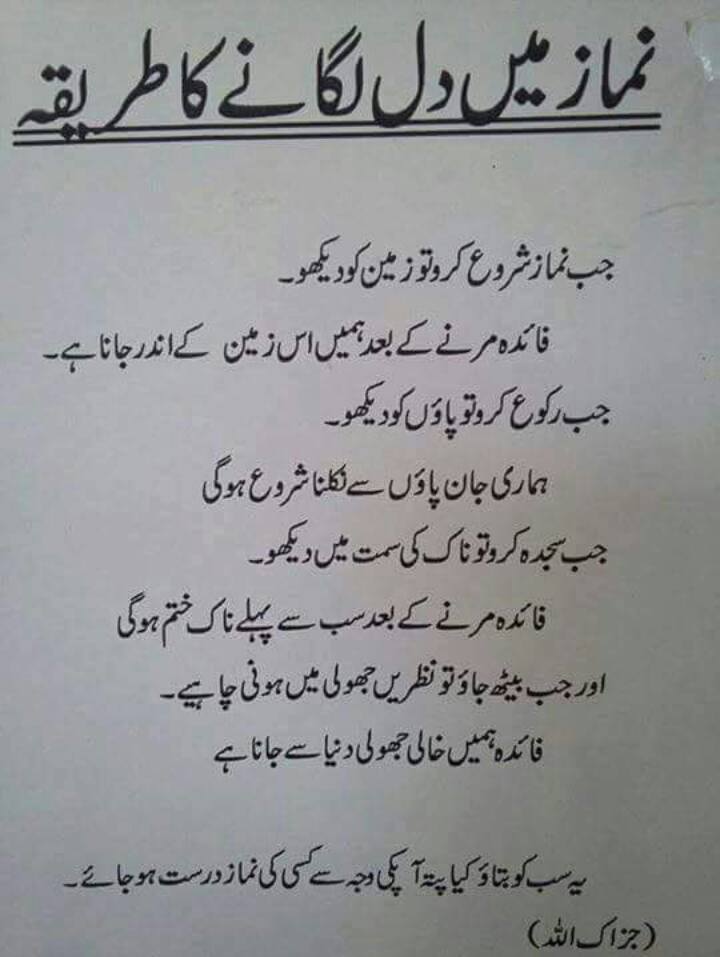 نماز میں دل لگانے کا طریقہ
جب نماز شروع کرو تو زمین کو دیکھو۔
فائدہ مرنے کے بعد ہمیں اس زمین کے اندر جانا ہے۔
جب رکوع کرو تو پاؤں کو دیکھو۔
ہماری جان پاؤں سے نکلنا شروع ہوگی
جب سجدہ کرو تو ناک کی سمت میں دیکھو۔
فائدہ مرنے کے بعد سب سے پہلے ناک ختم ہوگی
اور جب بیٹھ جاؤ تو نظریں جھولی میں ہونی چاہیے۔
فائدہ ہمیں خالی جھولی دنیا سے جانا ہے
یہ سب کو بتاؤ کیا پتہ آپکی وجہ سے کسی کی نماز درست ہو جائے۔
(جزاک اللہ)